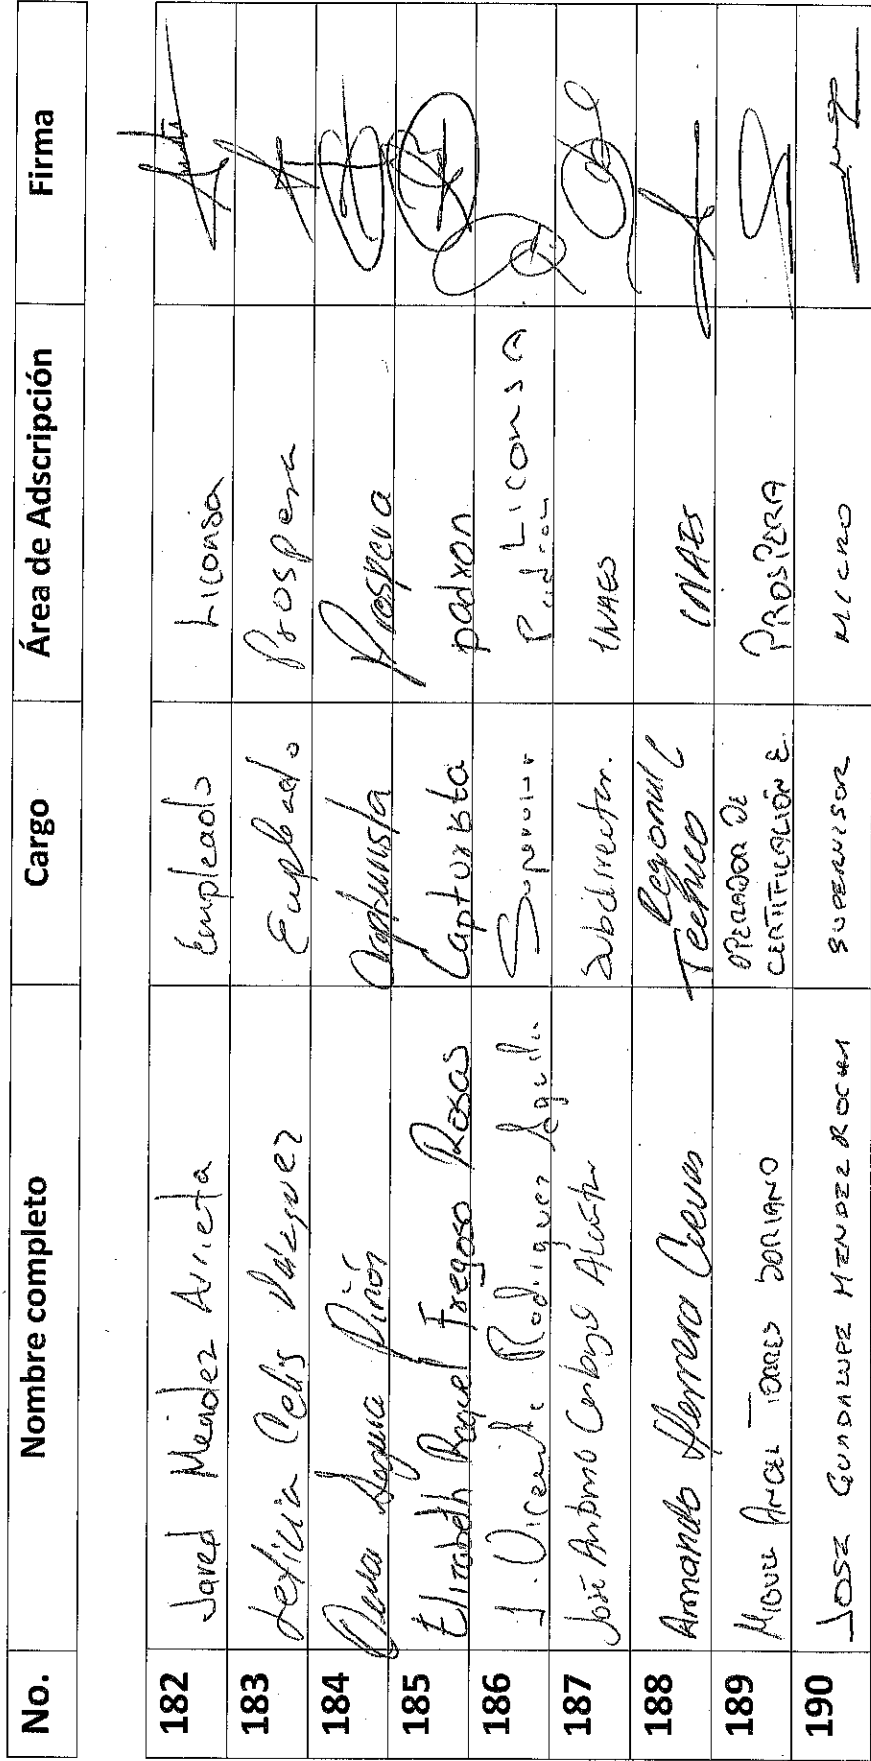 No. Nombre completo Cargo Área de Adscripción Firma
182 Jared Méndez Arrieta Empleado Liconsa
183 Leticia Celis Vázquez Empleado Prospera
184 Piñón Capturista Prospera
185 Elizabeth Raquel Fregoso Rosas Capturista padron
186 J. Vicente Rodriguez Aguila Supervisor Padron Liconsa
187 José Antonio Subdirector. INAES
188 Armando Herrera Cuevas Regional Tecnico INAES
189 Miguel Angel Torres Soriano OPERADOR DE
CERTIFICACIÓN E. PROSPERA
190 JOSE GUADALUPE MENDEZ ROCHA SUPERVISOR MICRO